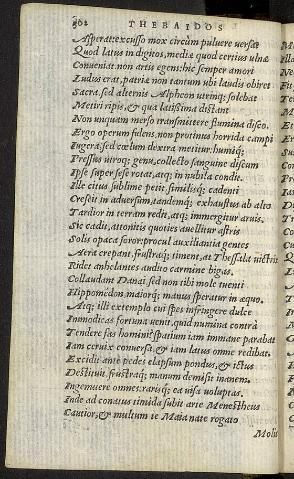 202 THEBAIDOS
Asperat: excusso mox circùm puluere uersat
Quod latus in digitos, mediæ quod certius ulnæ
Conueniat. non artis egens: hic semper amori
Ludus erat, patriæ non tantum ubi laudis obiret
Sacra, sed alternis Alpheon utrinq; solebat
Metiri ripis, & qua latissima distant
Non unquam merso transmittere flumina disco.
Ergo operum fidens, non protinus horrida campi
Iugera, sed cœlum dextra metitur: humiq;
Pressus utroq; genu, collecto sanguine discum
Ipse super sese rotat, atq; in nubila condit.
Ille citus sublime petit, similisq; cadenti
Crescit in aduersum, tandemq; exhaustus ab alto
Tardior in terram redit, atq; immergitur aruis.
Sic cadit, attonitis quoties auellitur astris
Solis opaca soror: procul auxiliantia gentes
Aera crepant, frustraq; timent, at Thessala uictrix
Ridet anhelantes audito carmine bigas.
Collaudant Danai, sed non tibi mole tuenti
Hippomedon, maiorq; manus speratur in æquo.
Atq; illi extemplo cui spes infringere dulce
Immodicas fortuna uenit, quid numina contrà
Tendere fas homini? spatium iam immane parabat
Iam ceruix conuersa, & iam latus omne redibat.
Excidit ante pedes elapsum pondus, & ictus
Destituit, frustraq; manum demisit inanem.
Ingemuere omnes: rarisq; ea uisa uoluptas.
Inde ad conatus timida subit arte Menestheus
Cautior, & multum te Maia nate rogato
Molis